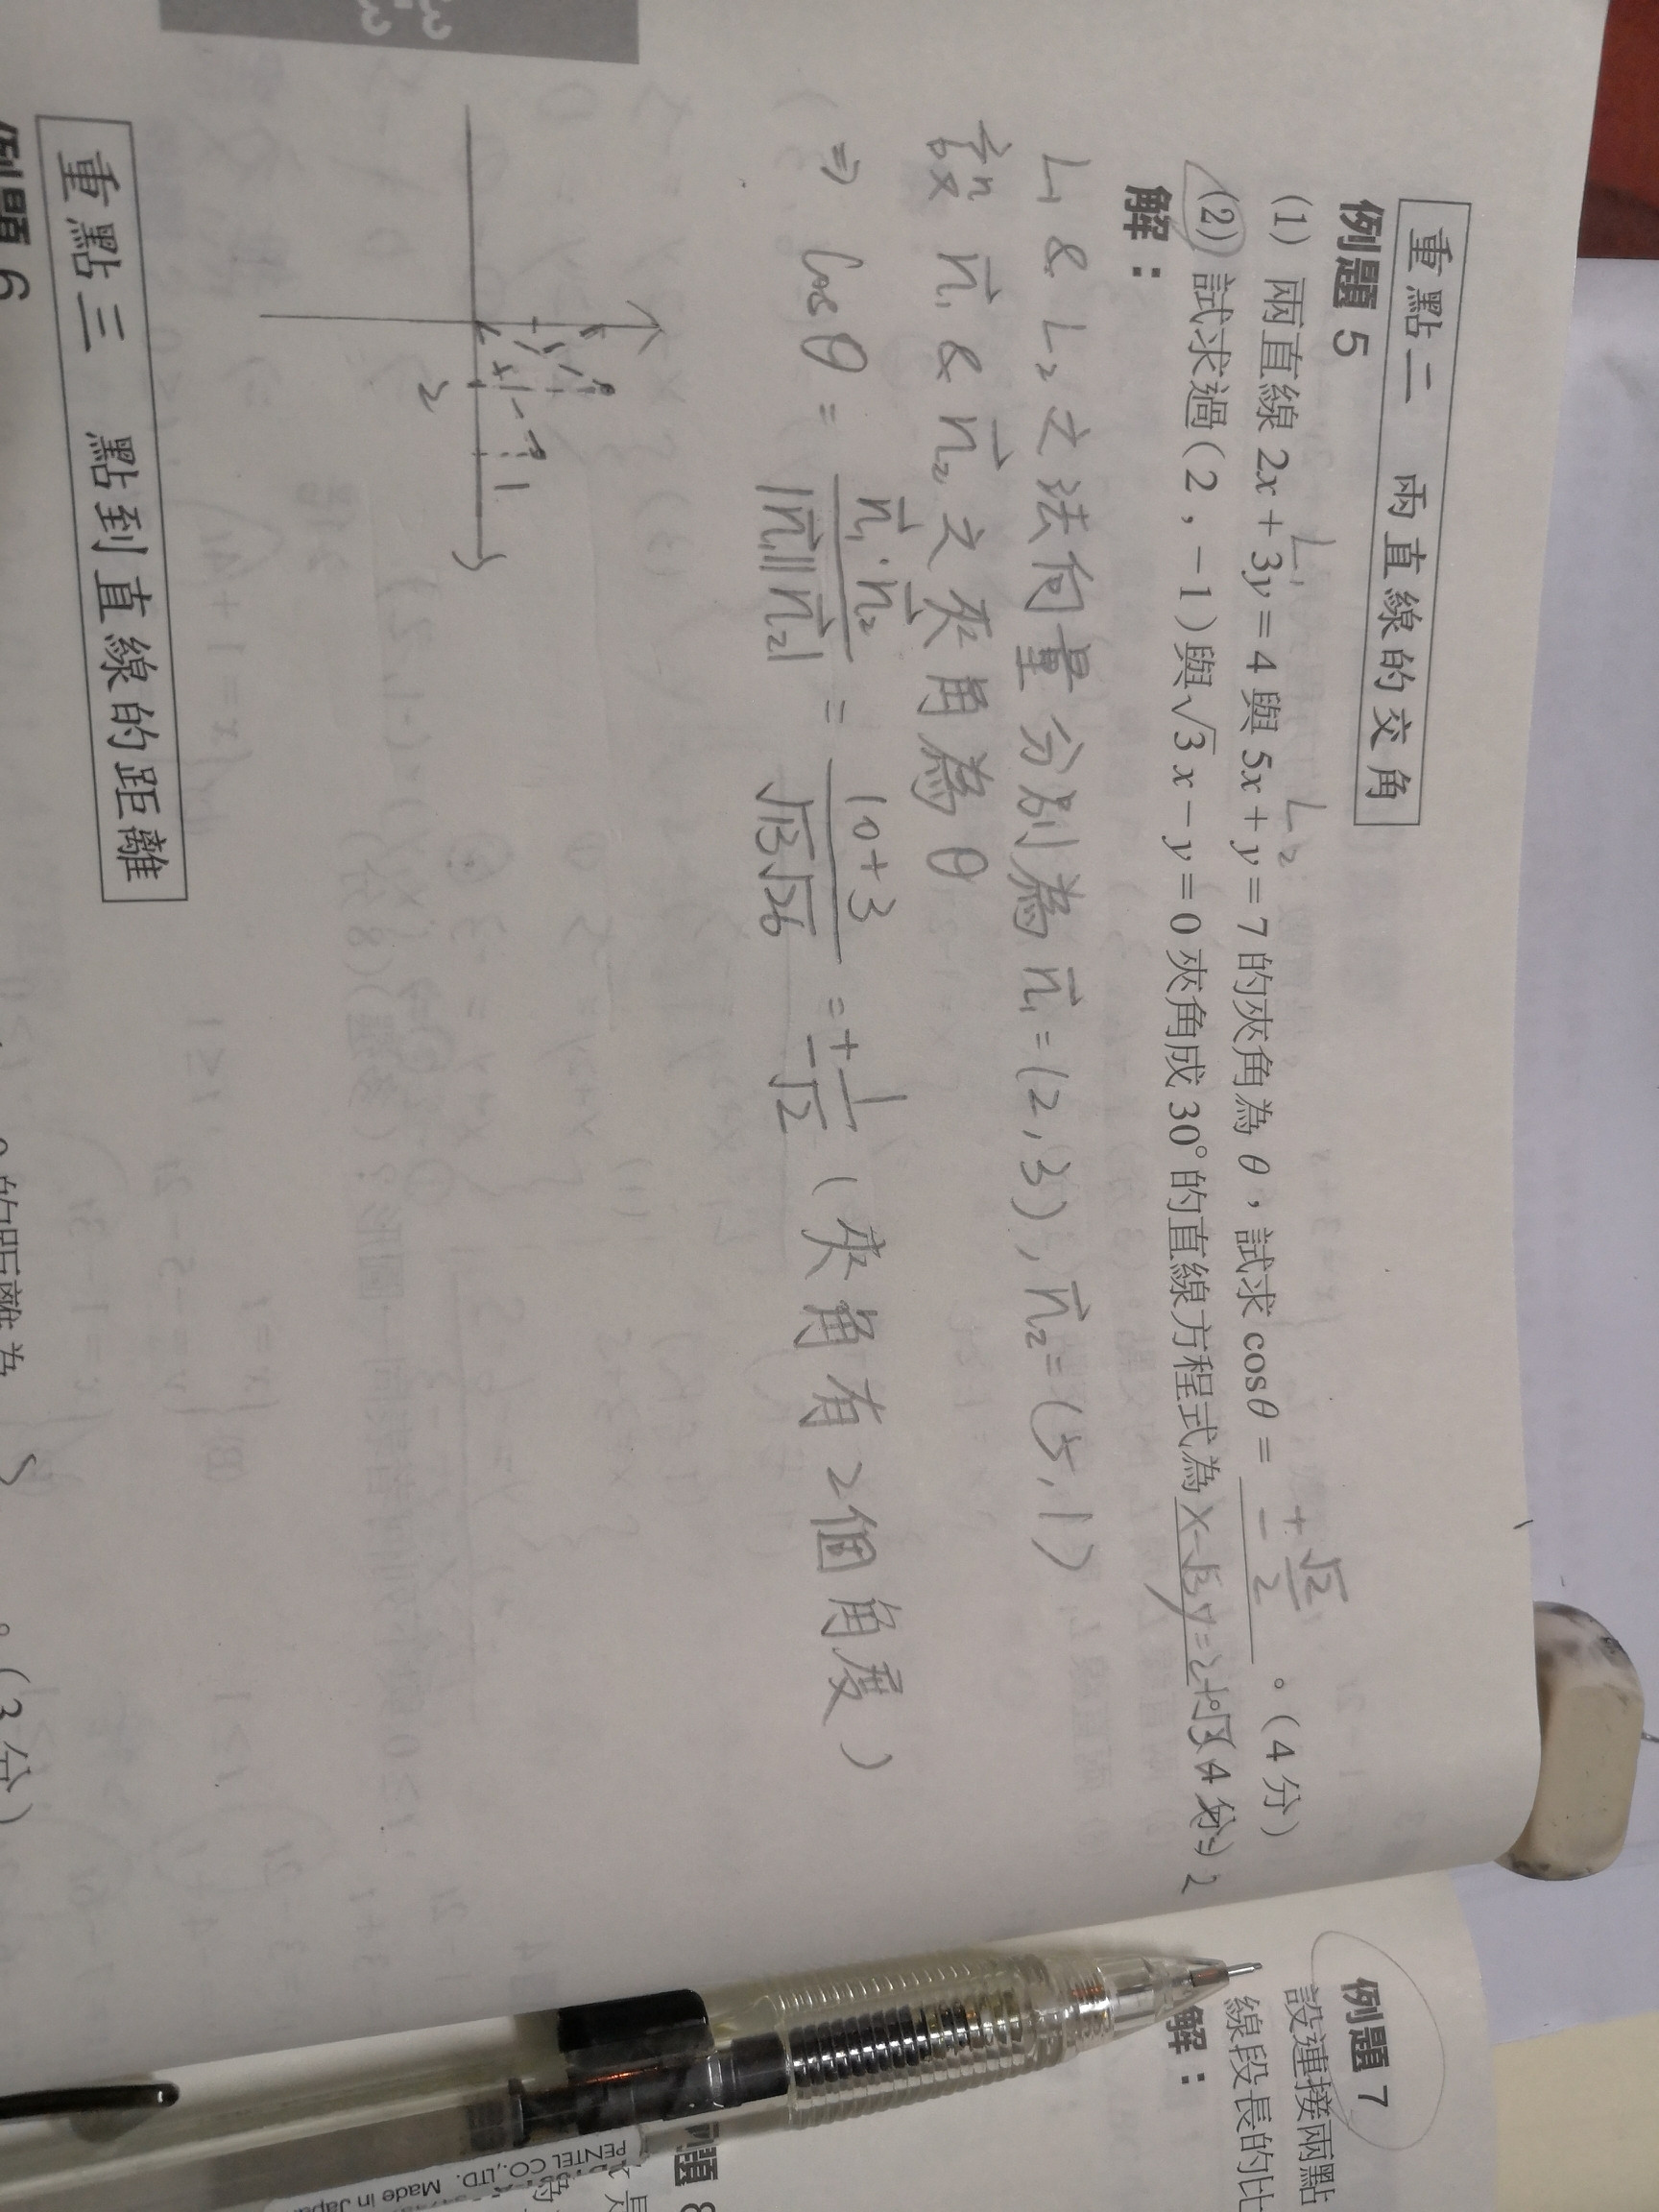 重點二 兩直線的交角
例題 5
L₁ L₂
(1) 兩直線 2x + 3y = 4 與 5x + y = 7 的夾角為 θ，試求 cosθ = ±√2/2 。(4 分)
(2) 試求過(2，-1)與√3 x - y = 0 夾角成 30° 的直線方程式為 x-√3y=2+√3 (4 分) 2
解：
L₁ & L₂ 之法向量分別為 n⃗₁=(2,3), n⃗₂=(5,1)
設 n⃗₁ & n⃗₂ 之夾角為 θ
⇒ cosθ = n⃗₁·n⃗₂/|n⃗₁||n⃗₂| = 10+3/√13√26 = ±1/√2 (夾角有2個角度)
2
重點三 點到直線的距離
例題 6
的距離為
。(3 分)
例題 7
設連接兩點
線段長的比
解：
例題 8
PENTEL CO.,LTD. Made in Japan